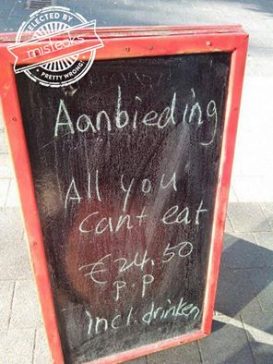 SELECTED BY
misteaks
PRETTY WRONG
Aanbieding
All you
can't eat
€24.50
p.p
incl. drinken